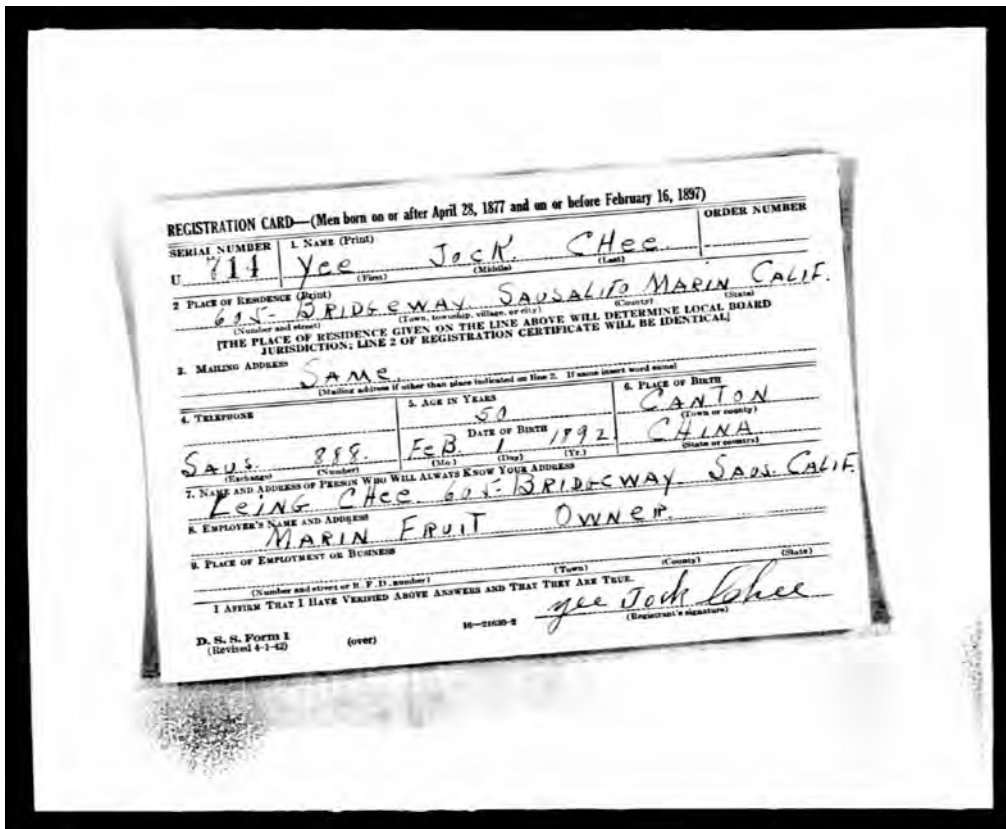 REGISTRATION CARD—(Men born on or after April 28, 1877 and on or before February 16, 1897)
SERIAL NUMBER 1. NAME (Print) ORDER NUMBER
U 714 Yee Jock CHee
(First) (Middle) (Last)
2 PLACE OF RESIDENCE (Print)
605- BRIDGEWAY SAUSALITO MARIN CALIF.
(Number and street) (Town, township, village, or city) (County) (State)
[THE PLACE OF RESIDENCE GIVEN ON THE LINE ABOVE WILL DETERMINE LOCAL BOARD
JURISDICTION; LINE 2 OF REGISTRATION CERTIFICATE WILL BE IDENTICAL]
3. MAILING ADDRESS
SAMe
(Mailing address if other than place indicated on line 2. If same insert word same)
4. TELEPHONE 5. AGE IN YEARS 6. PLACE OF BIRTH
50 CANTON
DATE OF BIRTH (Town or county)
SAUS. 888. FeB. 1 1892 CHINA
(Exchange) (Number) (Mo.) (Day) (Yr.) (State or country)
7. NAME AND ADDRESS OF PERSON WHO WILL ALWAYS KNOW YOUR ADDRESS
LeING CHee 605- BRIDGEWAY SAUS. CALIF.
8. EMPLOYER'S NAME AND ADDRESS
MARIN FRUIT OWNER.
9. PLACE OF EMPLOYMENT OR BUSINESS
(Number and street or R. F. D. number) (Town) (County) (State)
I AFFIRM THAT I HAVE VERIFIED ABOVE ANSWERS AND THAT THEY ARE TRUE.
yee Jock Chee
(Registrant's signature)
D. S. S. Form 1
(Revised 4-1-42) (over) 16—21630-2